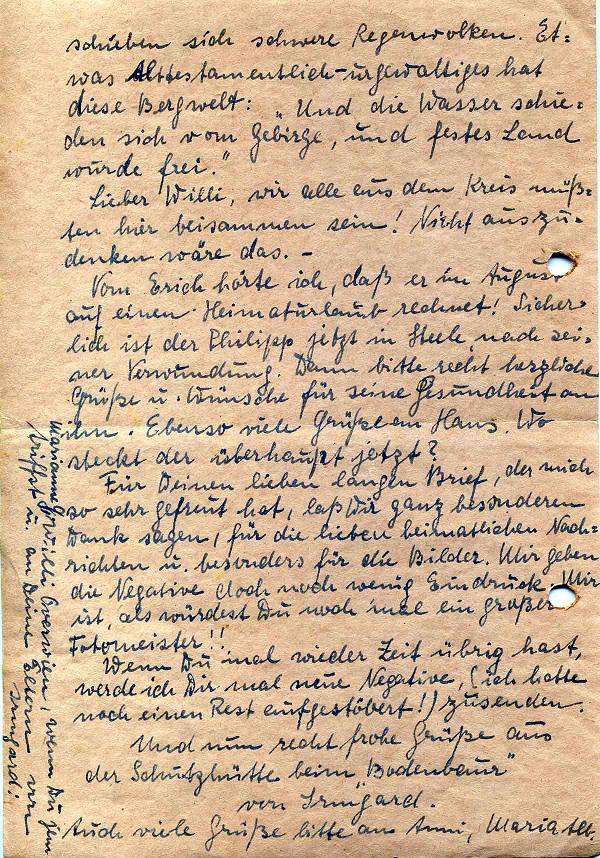 schieben sich schwere Regenwolken. Et=
was Alttestamentlich-urgewaltiges hat
diese Bergwelt: „Und die Wasser schie=
den sich vom Gebirge, und festes Land
wurde frei."
Lieber Willi, wir alle aus dem Kreis müß=
ten hier beisammen sein! Nicht auszu=
denken wäre das. –
Vom Erich hörte ich, daß er im August
auf einen Heimaturlaub rechnet! Sicher=
lich ist der Philipp jetzt in Steele, nach sei=
ner Verwundung. Dann bitte recht herzliche
Grüße u. Wünsche für seine Gesundheit an
ihn. Ebenso viele Grüße an Hans. Wo
steckt der überhaupt jetzt?
Für Deinen lieben langen Brief, der mich
so sehr gefreut hat, laß Dir ganz besonderen
Dank sagen, für die lieben heimatlichen Nach=
richten u. besonders für die Bilder. Mir geben
die Negative doch noch wenig Eindruck. Mir
ist, als würdest Du noch mal ein großer
Fotomeister!!
Wenn Du mal wieder Zeit übrig hast,
werde ich Dir mal neue Negative, (ich hatte
noch einen Rest aufgestöbert!) zusenden.
Und nun recht frohe Grüße aus
der Schutzhütte beim "Bodenbaur"
von Irmgard.
Auch viele Grüße bitte an Anni, Maria Alt.
Marianne, Willi, wenn Du sie
triffst u. an Deine Eltern von
Irmgard!